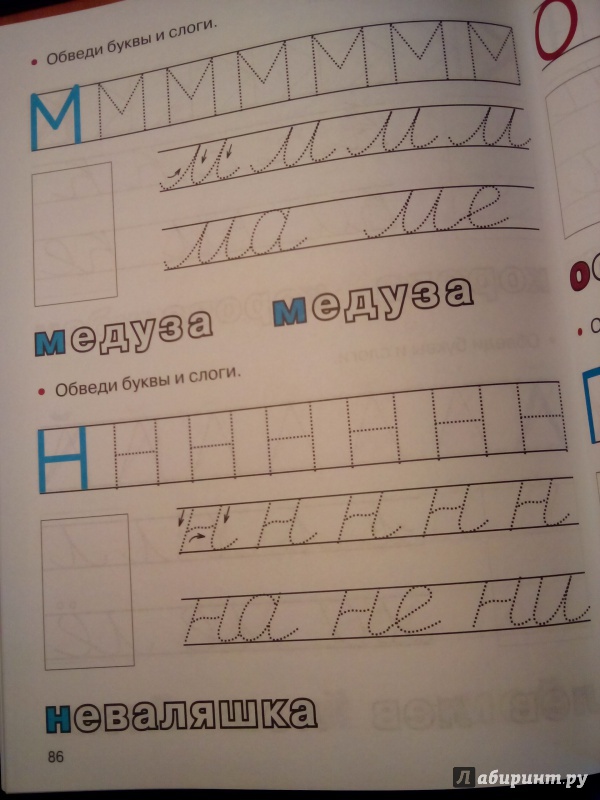 Обведи буквы и слоги.
М М М М М М М
м м м м м
ма ме
медуза медуза
Обведи буквы и слоги.
Н Н Н Н Н Н Н
н н н н н
на не ни
неваляшка
86
Лабиринт.ру